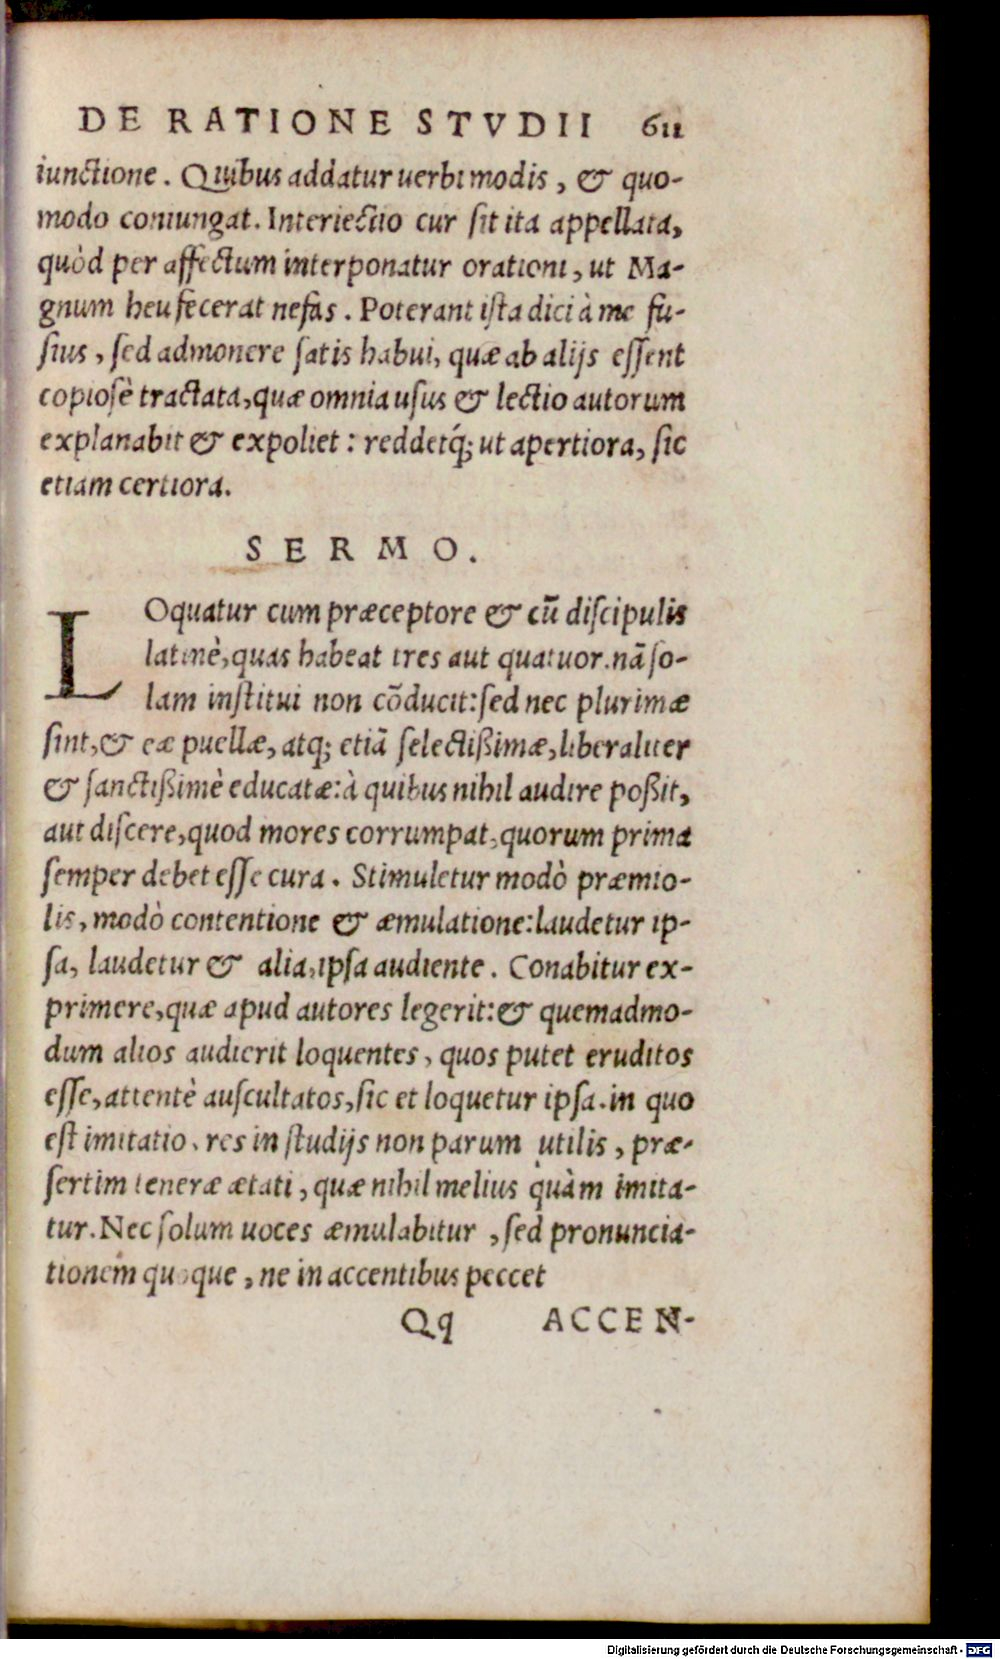 DE RATIONE STVDII 611
iunctione. Quibus addatur uerbi modis, & quo-
modo coniungat. Interiectio cur sit ita appellata,
quòd per affectum interponatur orationi, ut Ma-
gnum heu fecerat nefas. Poterant ista dici à me fu-
sius, sed admonere satis habui, quæ ab alijs essent
copiosè tractata, quæ omnia usus & lectio autorum
explanabit & expoliet: reddetq́; ut apertiora, sic
etiam certiora.
SERMO.
LOquatur cum præceptore & cū discipulis
latinè, quas habeat tres aut quatuor. nā so-
lam institui non cōducit: sed nec plurimæ
sint, & eæ puellæ, atq; etiā selectißimæ, liberaliter
& sanctißimè educatæ: à quibus nihil audire poßit,
aut discere, quod mores corrumpat, quorum prima
semper debet esse cura. Stimuletur modò præmio-
lis, modò contentione & æmulatione: laudetur ip-
sa, laudetur & alia, ipsa audiente. Conabitur ex-
primere, quæ apud autores legerit: & quemadmo-
dum alios audierit loquentes, quos putet eruditos
esse, attentè auscultatos, sic et loquetur ipsa. in quo
est imitatio, res in studijs non parum utilis, præ-
sertim teneræ ætati, quæ nihil melius quàm imita-
tur. Nec solum uoces æmulabitur, sed pronuncia-
tionem quoque, ne in accentibus peccet
Qq ACCEN-
Digitalisierung gefördert durch die Deutsche Forschungsgemeinschaft - DFG